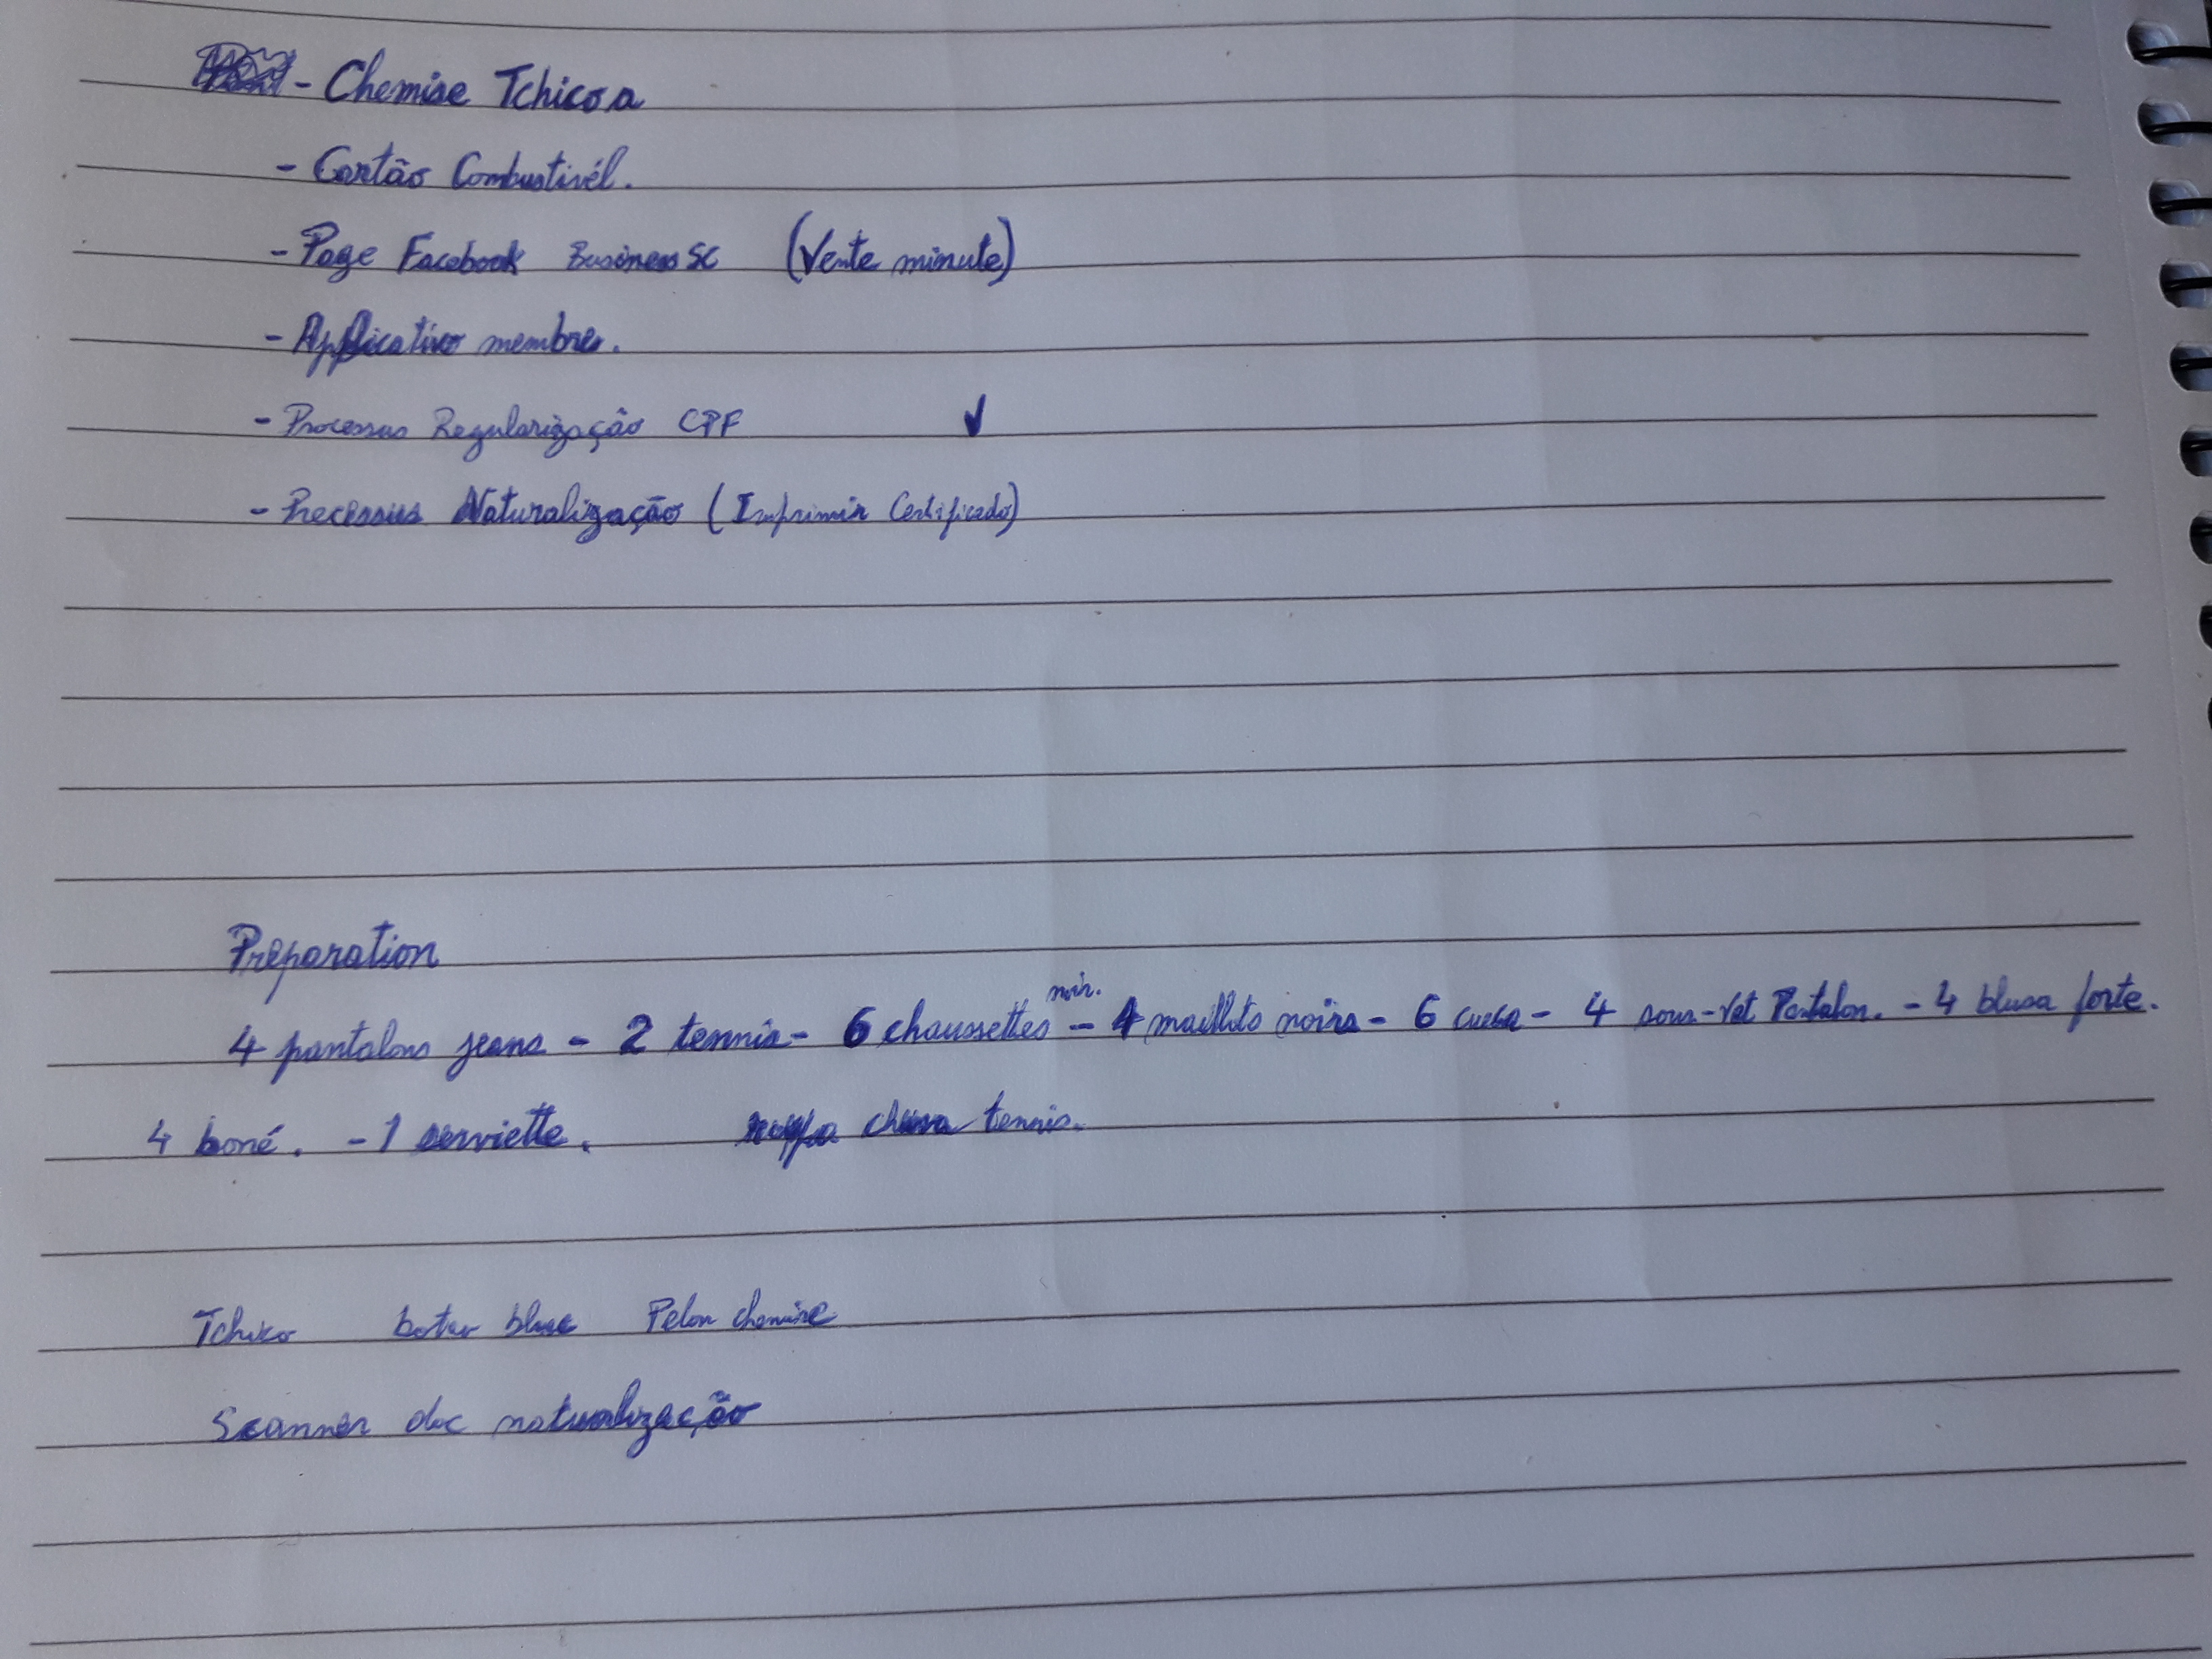 - Chemise Tchicos
- Cartão Combustivél.
- Page Facebook Business (Vente minute)
- Applicativo membres.
- Processus Regularização CPF ✓
- Processus Naturalização (Imprimir Certificado)
Préparation
4 pantalons jeans - 2 tennis - 6 chaussettes noir. - 4 maillots noirs - 6 cueca - 4 sous-vet Pantalon. - 4 blusa forte.
4 boné. - 1 serviette. roupa chuva tennis.
Tchiko blue chemise
Scanner doc naturalização